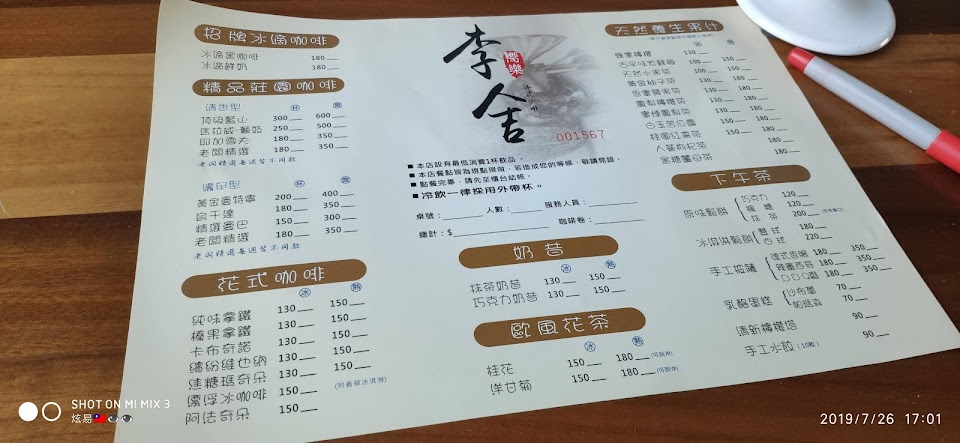 招牌冰滴咖啡
冰滴黑咖啡 180
冰滴鮮奶 180
精品莊園咖啡
清香型 杯 壺
頂級藍山 300 600
250 500
耶加雪夫 180 350
老闆精選 180 350
老闆精選每週皆不同款
濃句型 杯 壺
黃金曼特寧 200 400
180 350
精選曼巴 150 300
老闆精選 180 350
老闆精選每週皆不同款
花式咖啡
冰 熱
純味拿鐵 130 150
榛果拿鐵 130 150
卡布奇諾 130 150
繽紛維也納 130 150
焦糖瑪奇朵 130 150
漂浮冰咖啡 150 (附香草冰淇淋)
阿法奇朵 150
李舍
饗樂
001567
■本店設有最低消費1杯飲品。
■本店餐點皆為現點現做,若造成您的等候,敬請見諒。
■點餐完畢,請先至櫃台結帳。
■冷飲一律採用外帶杯。
桌號: 人數: 服務人員:
總計:$ 咖啡卷:
奶昔
冰 熱
抹茶奶昔 130 150
巧克力奶昔 130 150
歐風花茶
冰 熱
桂花 150 180 (可回沖)
洋甘菊 150 180 (可回沖)
天然養生果汁
冰 熱
蜂蜜檸檬 100 130
古早味酸梅 100 150
天然水果茶 100 150
黃金柚子茶 130 150
蜜蘋果茶 130 150
鳳梨檸檬茶 130 150
鳳梨茶 130 150
白玉苦瓜露 150
桂圓紅棗茶 150 180
人蔘枸杞茶 180
黑糖薑母茶 180
下午茶
原味鬆餅 巧克力 120
楓糖 120
抹茶 200
冰淇淋鬆餅 雙球 180
四球 220
手工披薩 180 350
墨西哥 180 350
180 350
乳酪蛋糕 沙布蕾 70
帕瑪森 70
清新檸檬塔 90
手工水餃 (10顆) 90
SHOT ON MI MIX 3
炫易🇹🇼👁👁
2019/7/26 17:01